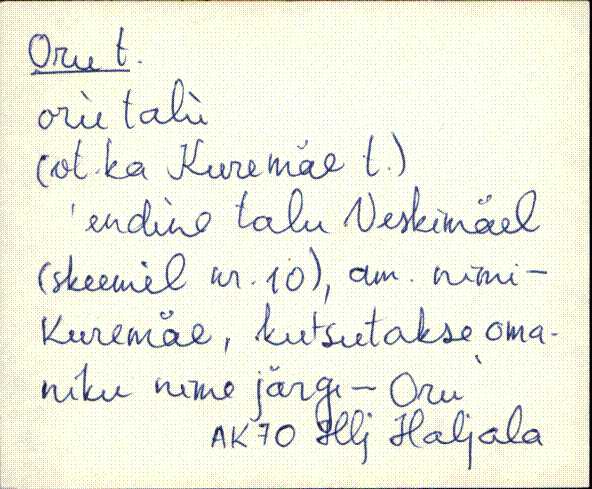 Oru t.
orù talù
(vt. ka Kuremäe t.)
'endine talu Veskimäel
(skeemil nr. 10), am. nimi -
Kuremäe, kutsutakse oma-
niku nime järgi - Oru
AK 70 Hlj Haljala